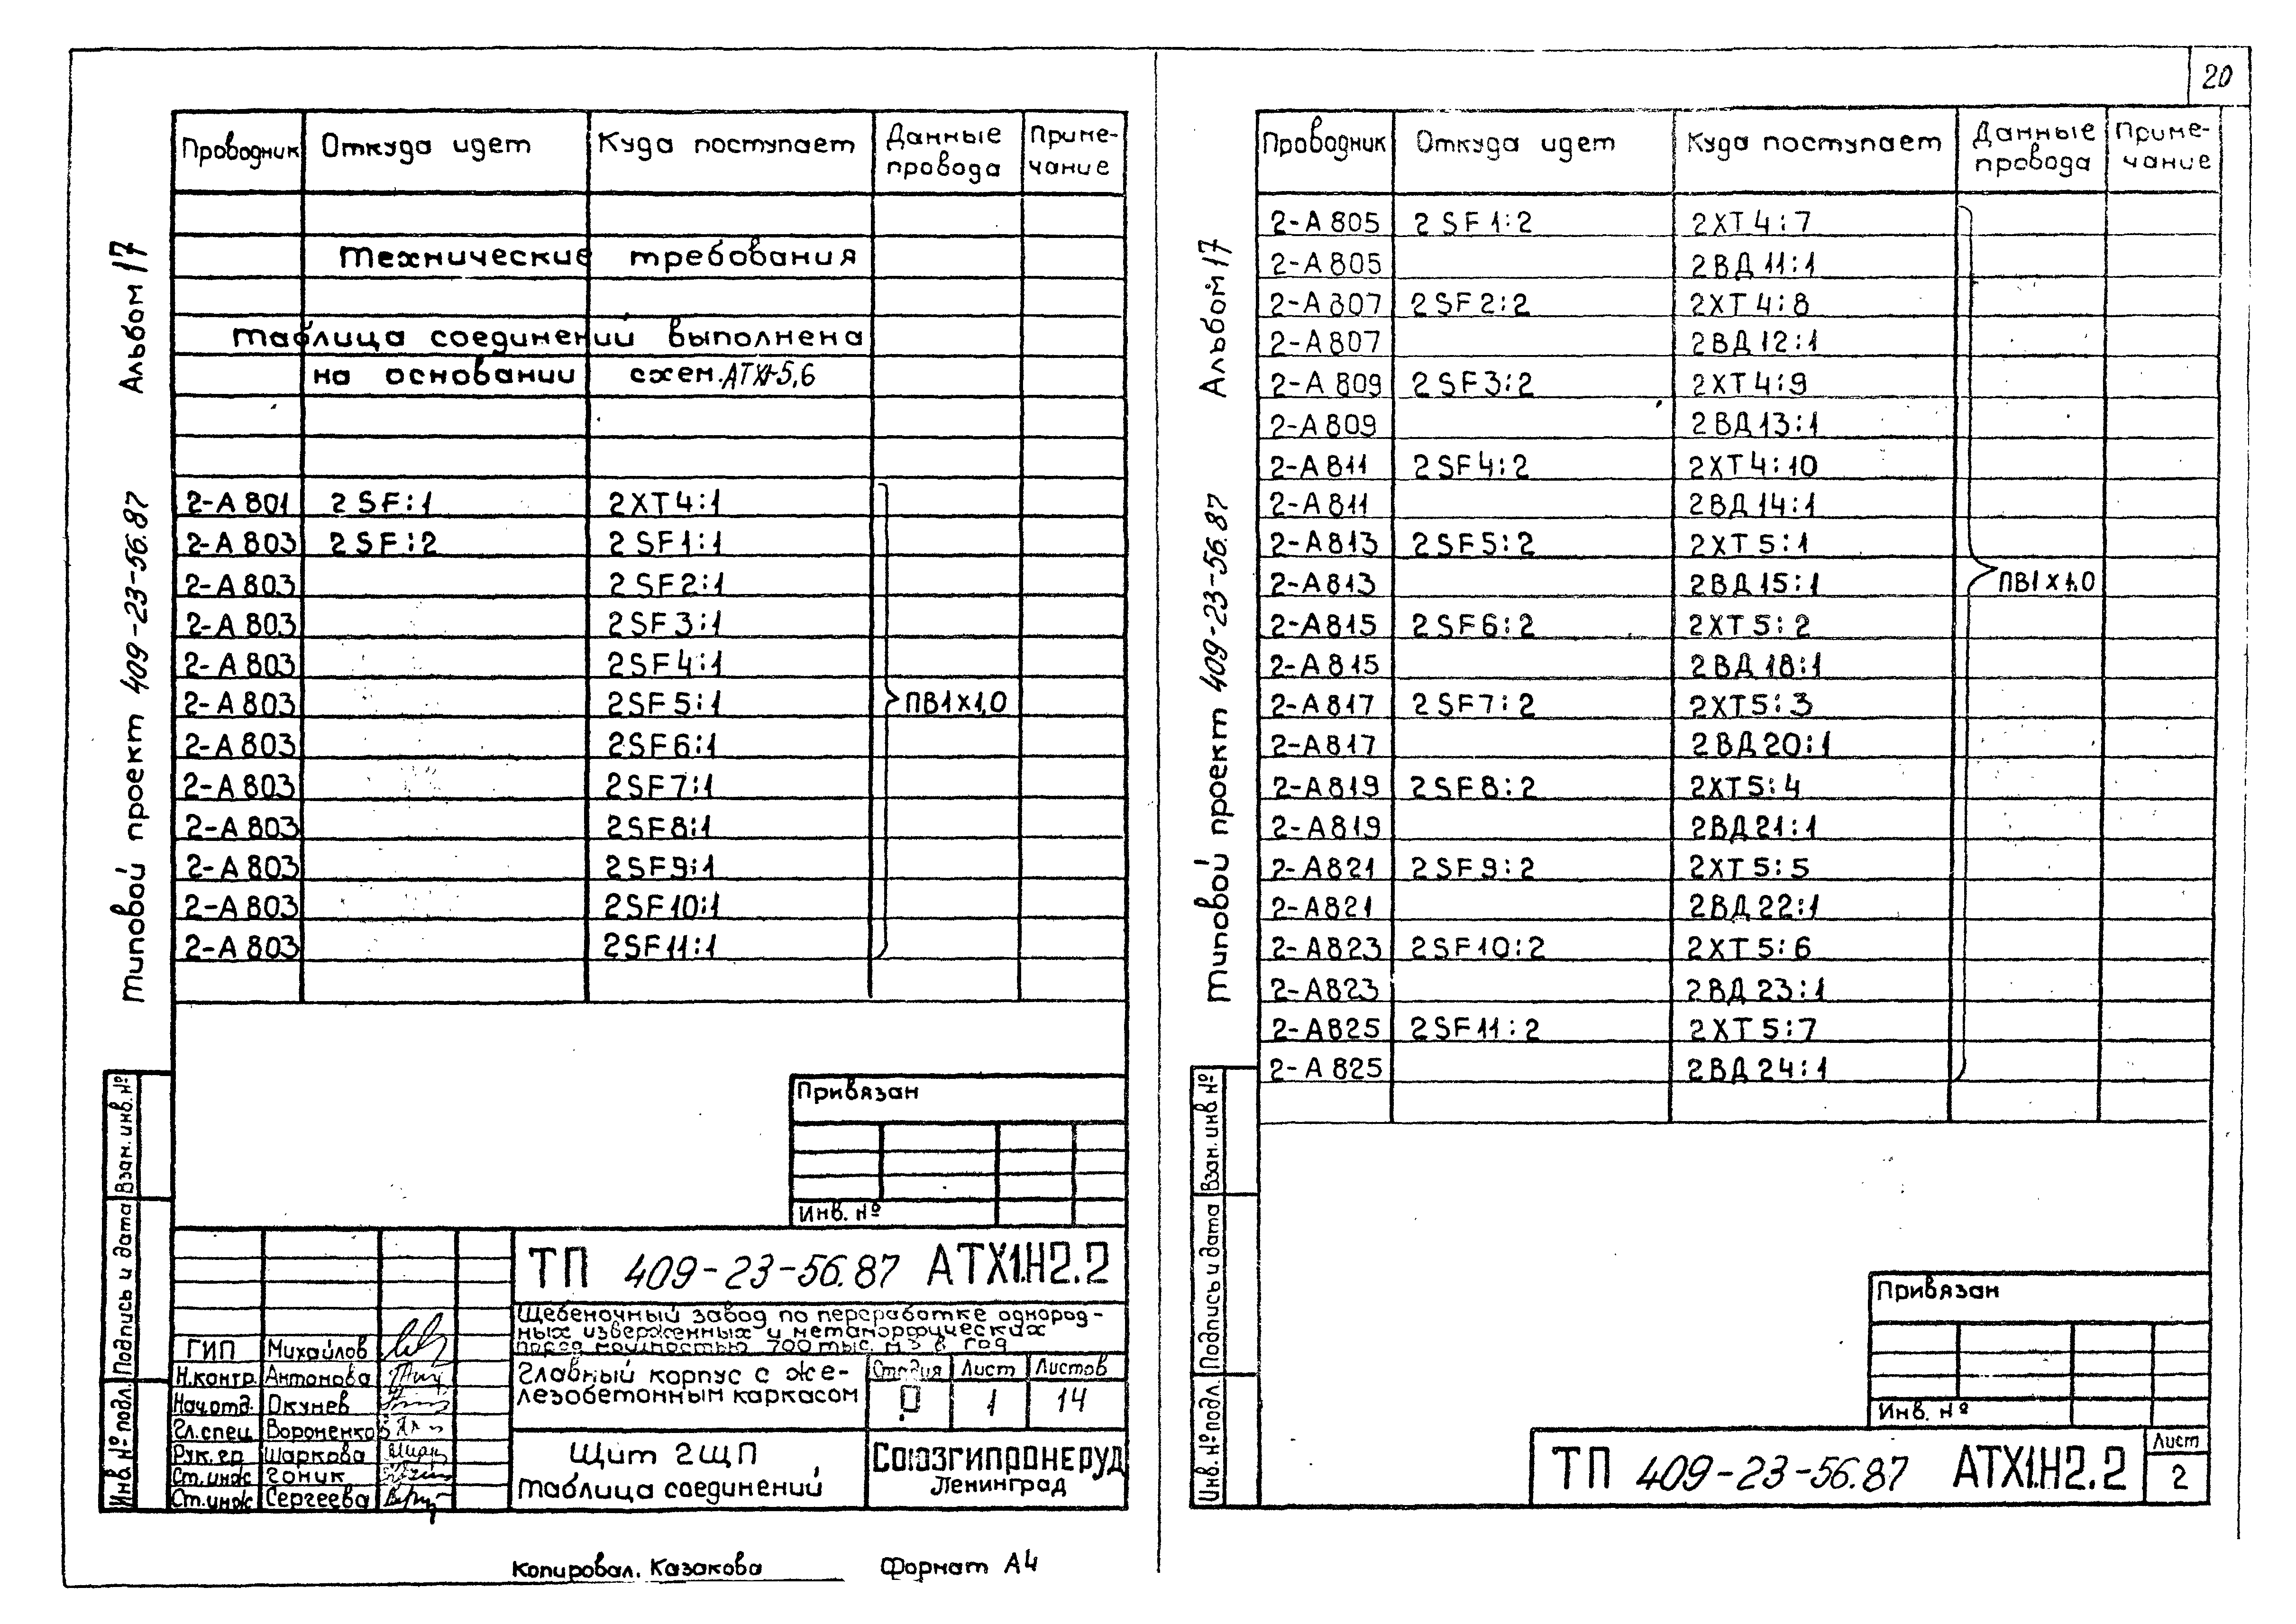 20
Альбом 17
типовой проект 409-23-56.87
Проводник Откуда идет Куда поступает Данные провода Приме-чание
Технические требования
таблица соединений выполнена
на основании схем. АТХ1-5,6
2-А801 2SF:1 2ХТ4:1
2-А803 2SF:2 2SF1:1
2-А803 2SF2:1
2-А803 2SF3:1
2-А803 2SF4:1
2-А803 2SF5:1 ПВ1х1,0
2-А803 2SF6:1
2-А803 2SF7:1
2-А803 2SF8:1
2-А803 2SF9:1
2-А803 2SF10:1
2-А803 2SF11:1
Привязан
Инв. №
Взам. инв. №
Подпись и дата
Инв. № подл.
ТП 409-23-56.87 АТХ1.Н2.2
Щебеночный завод по переработке однород-
ных изверженных и метаморфических
пород мощностью 700 тыс. м3 в год
ГИП Михайлов
Н.контр. Антонова
Нач.отд. Окунев
Гл.спец Вороненков
Рук.гр Шаркова
Ст.инж Гоник
Ст.инж Сергеева
Главный корпус с же-
лезобетонным каркасом
Стадия Лист Листов
Р 1 14
Щит 2ЩП
таблица соединений
СОЮЗГИПРОНЕРУД
Ленинград
Копировал. Казакова Формат А4
Альбом 17
типовой проект 409-23-56.87
Проводник Откуда идет Куда поступает Данные провода Приме-чание
2-А805 2SF1:2 2ХТ4:7
2-А805 2ВД11:1
2-А807 2SF2:2 2ХТ4:8
2-А807 2ВД12:1
2-А809 2SF3:2 2ХТ4:9
2-А809 2ВД13:1
2-А811 2SF4:2 2ХТ4:10
2-А811 2ВД14:1
2-А813 2SF5:2 2ХТ5:1
2-А813 2ВД15:1 ПВ1х1,0
2-А815 2SF6:2 2ХТ5:2
2-А815 2ВД18:1
2-А817 2SF7:2 2ХТ5:3
2-А817 2ВД20:1
2-А819 2SF8:2 2ХТ5:4
2-А819 2ВД21:1
2-А821 2SF9:2 2ХТ5:5
2-А821 2ВД22:1
2-А823 2SF10:2 2ХТ5:6
2-А823 2ВД23:1
2-А825 2SF11:2 2ХТ5:7
2-А825 2ВД24:1
Взам. инв №
Подпись и дата
Инв. № подл.
Привязан
Инв. №
ТП 409-23-56.87 АТХ1.Н2.2
Лист
2